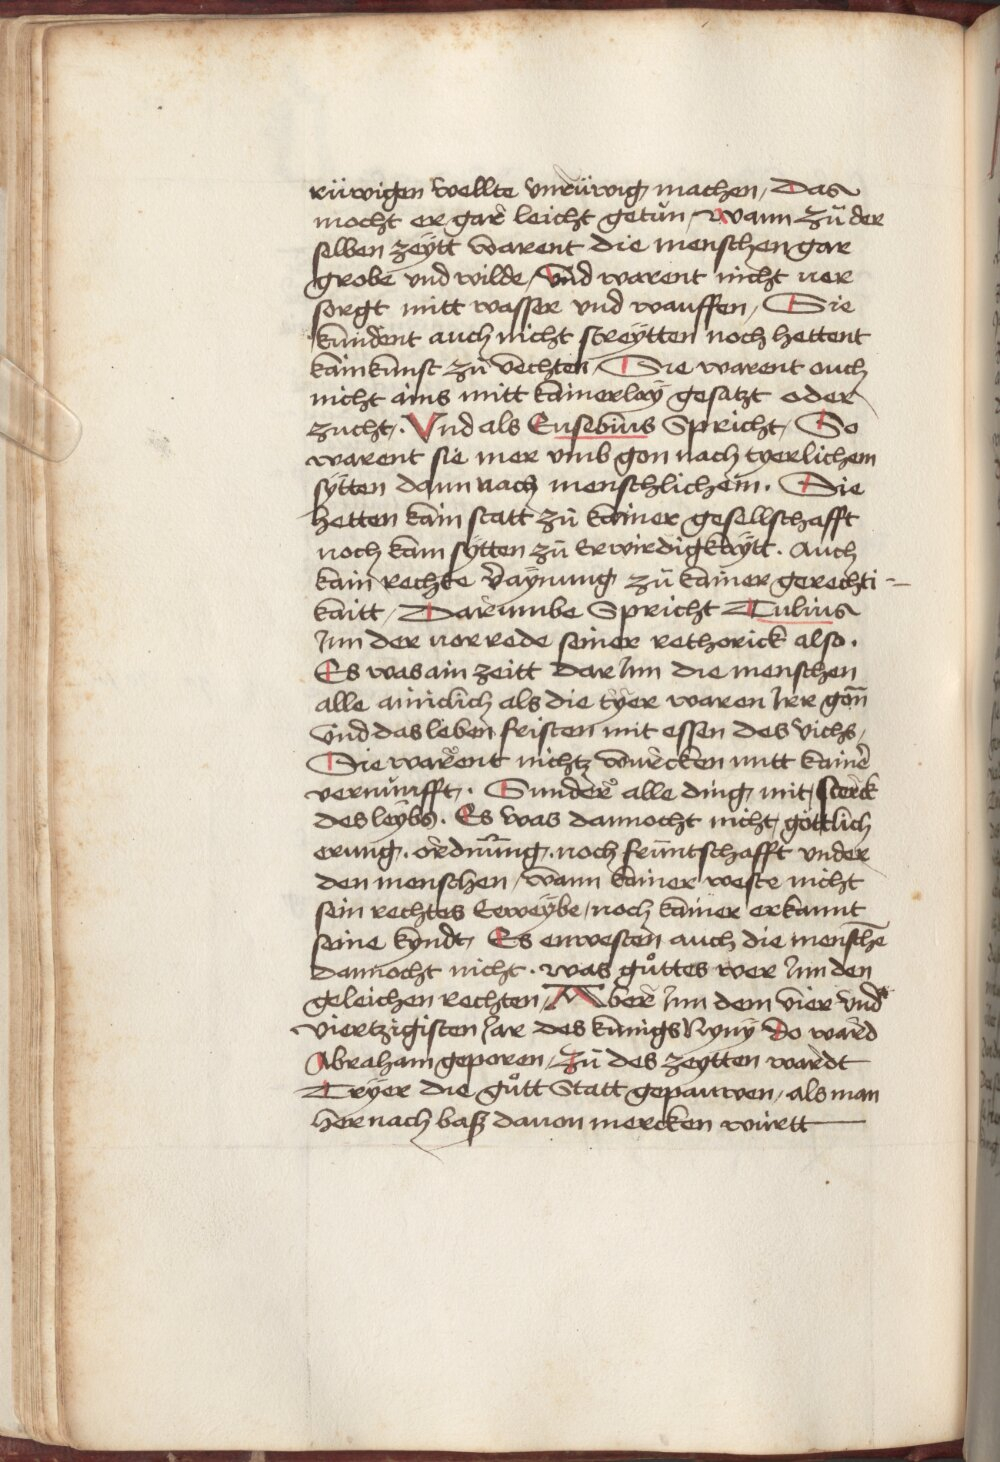 rüwigen wellte vnrüwig machen / Das
mocht er gar leicht getůn / wann zů der
selben zeÿtt warent die menschen gar
grobe vnd wilde / vnd warent nicht ver
sorgt mitt wasser vnd wauffen / Sie
kundent auch nicht streÿtten noch hettent
kain kunst zů vechten / Sie warent ouch
nicht ains mitt kainerlaÿ gesatzt oder
zucht / . Vnd als Eusebius Spricht / So
warent sie mer vmb gon nach tyerlichem
sÿtten dann nach menschlichem . Sie
hetten kain statt zů kainer gesellschafft
noch kain sÿtten zů Erwirdigkaÿtt . Auch
kain rechte v̄aÿnung zů kainer gerechti -
kaitt / Darumbe Spricht Tulius
Jnn der vorrede seiner rethorick also .
Es was ain zeitt dar Jnn die menschen
alle ainiclich als die tÿer waren Jrr gōn
vnd das leben fristen mit essen des vichs /
Sie warent nichtz wurcken mitt kainer
vernunfft / . Sunder alle ding mit sterck
des leÿbs . Es was dannocht nicht göttlich
erung . ordnung . noch früntschafft vnder
den menschen / wann kainer weste nicht
sein rechtes Eeweÿbe / noch kainer erkannt
seine kyndt / Es enwesten auch die mensch̄e
dannocht nicht . was gůttes wer Jnn den
geleichen rechten / Aber Jnn dem vier vnd
viertzigisten Jar des kunigs Nynÿ Do ward
Abraham geporen / zů des zeytten wardt
Trÿer die gůtt Statt gepauwen / als man
her nach basz dauon mercken wurtt